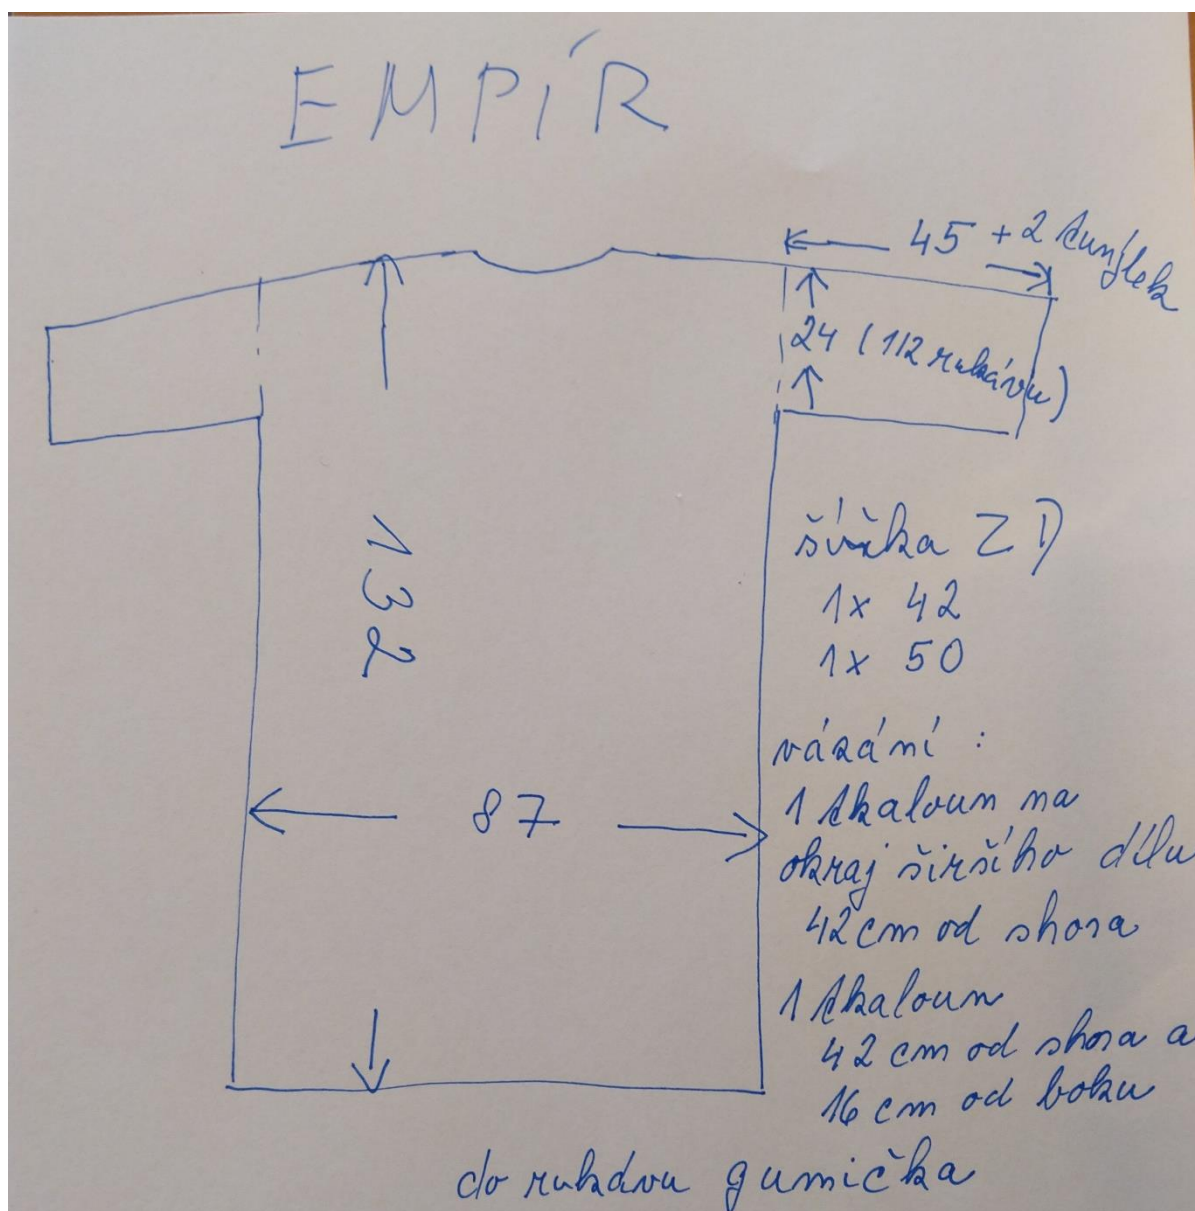 EMPÍR
45 + 2 tunýlek
24 (1/2 rukávu)
132
šířka ZD
1x 42
1x 50
87
vázání :
1 tkaloun na
okraj širšího dílu
42 cm od shora
1 tkaloun
42 cm od shora a
16 cm od boku
do rukávu gumička